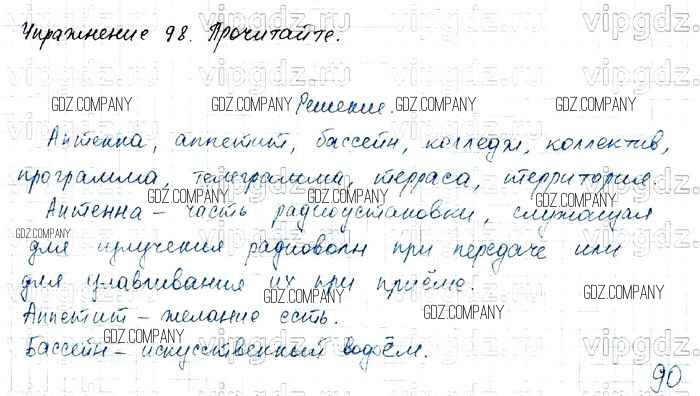 Упражнение 98. Прочитайте.
Решение.
Антенна, аппетит, бассейн, колледж, коллектив,
программа, телеграмма, терраса, территория.
Антенна – часть радиоустановки, служащая
для излучения радиоволн при передаче или
для улавливания их при приёме.
Аппетит – желание есть.
Бассейн – искусственный водоём.
90